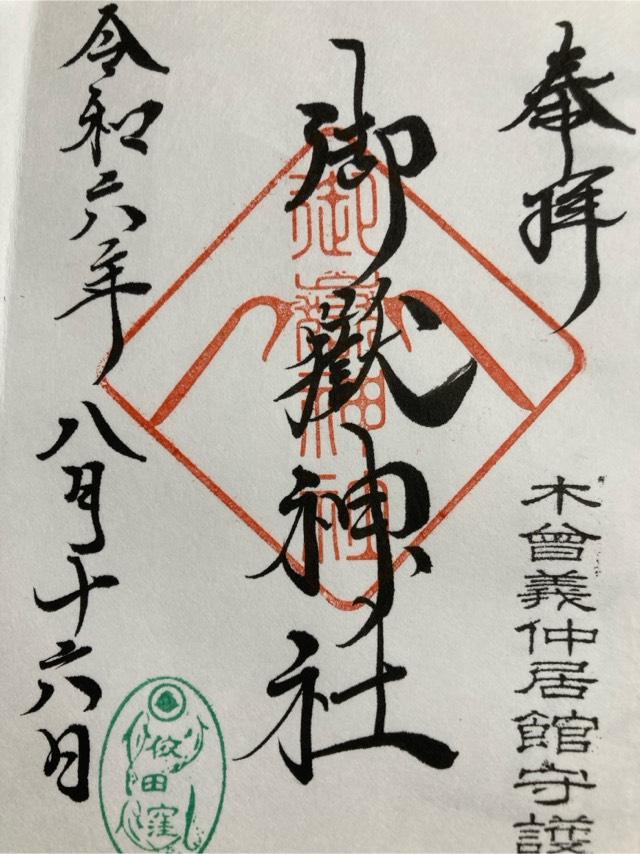 奉拝
木曾義仲居館守護
御嶽神社
御嶽神社
令和六年八月十六日
依田窪